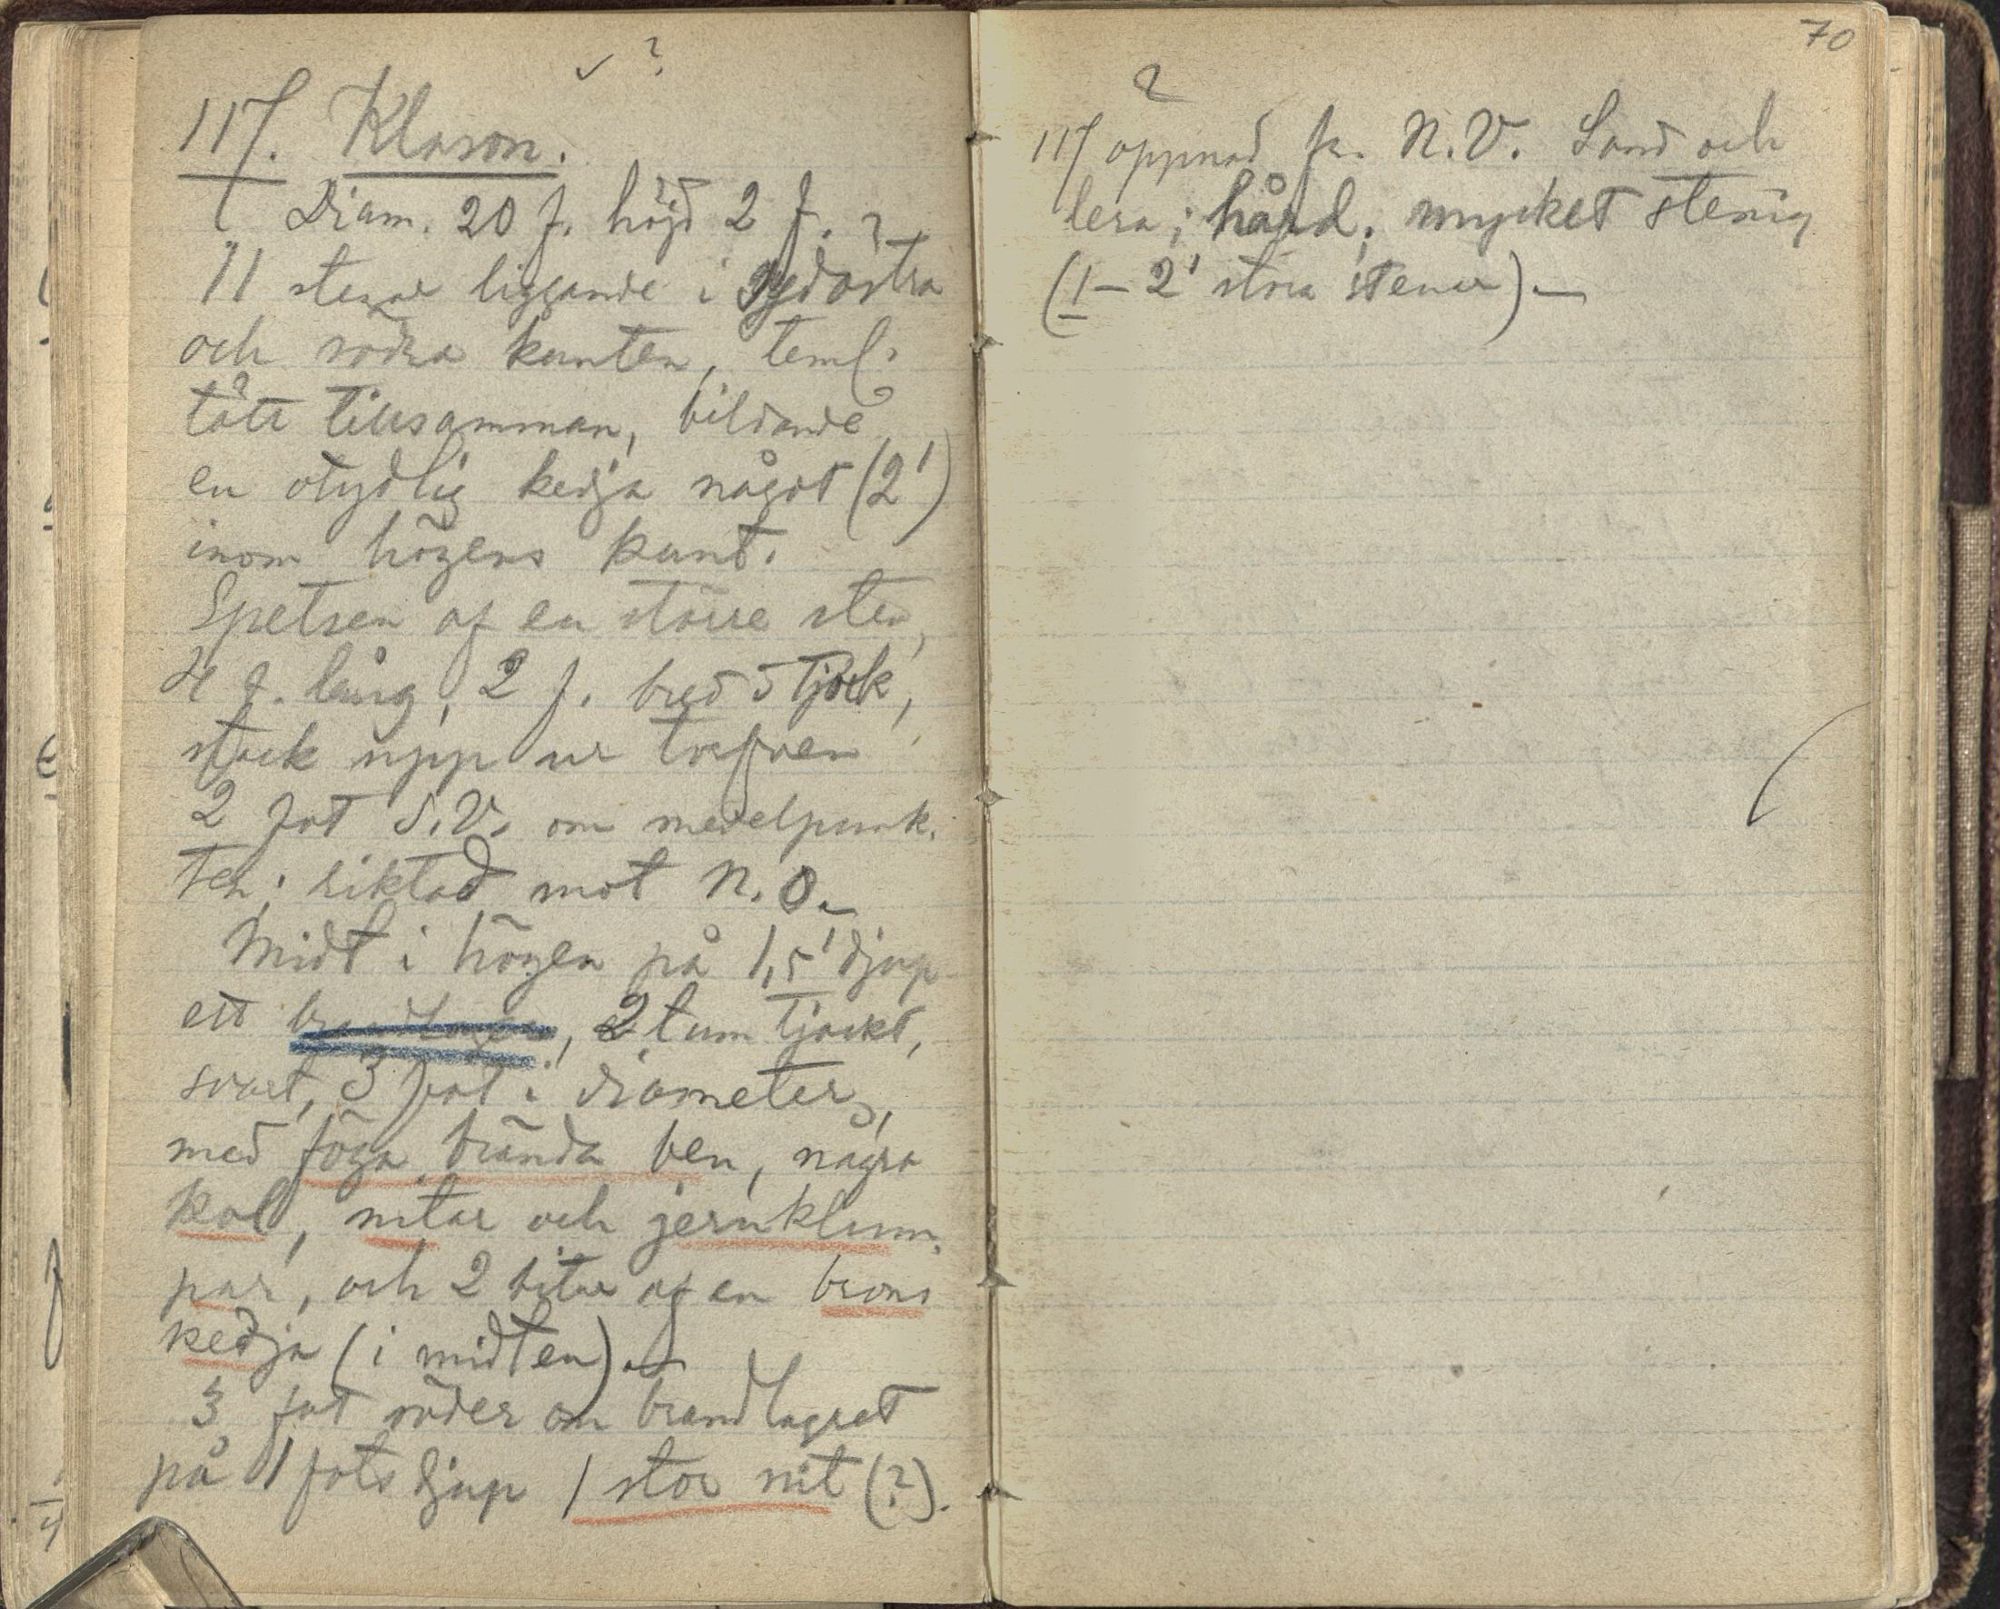 ✓ ?
117. Klason.
Diam. 20 f. höjd 2 f. ?
11 stenar liggande i sydöstra
och södra kanten, teml.
tätt tillsamman, bildande
en otydlig kedja något (2')
inom högens kant.
Spetsen af en större sten,
4 f. lång, 2 f. bred o tjock,
stack upp ur torfven
2 fot S.V. om medelpunk-
ten; riktad mot N.O. –
Midt i högen på 1,5' djup
ett brandlager, 2 tum tjockt,
svart, 3 fot i diameter,
med föga brända ben, några
kol, nitar och jernklum-
par, och 2 bitar af en brons
kedja (i midten). –
3 fot söder om brandlagret
på 1 fots djup 1 stor nit (?).
70
?
117 öppnad fr. N.V. Sand och
lera; hård; mycket stenig
(1–2' stora stenar). –